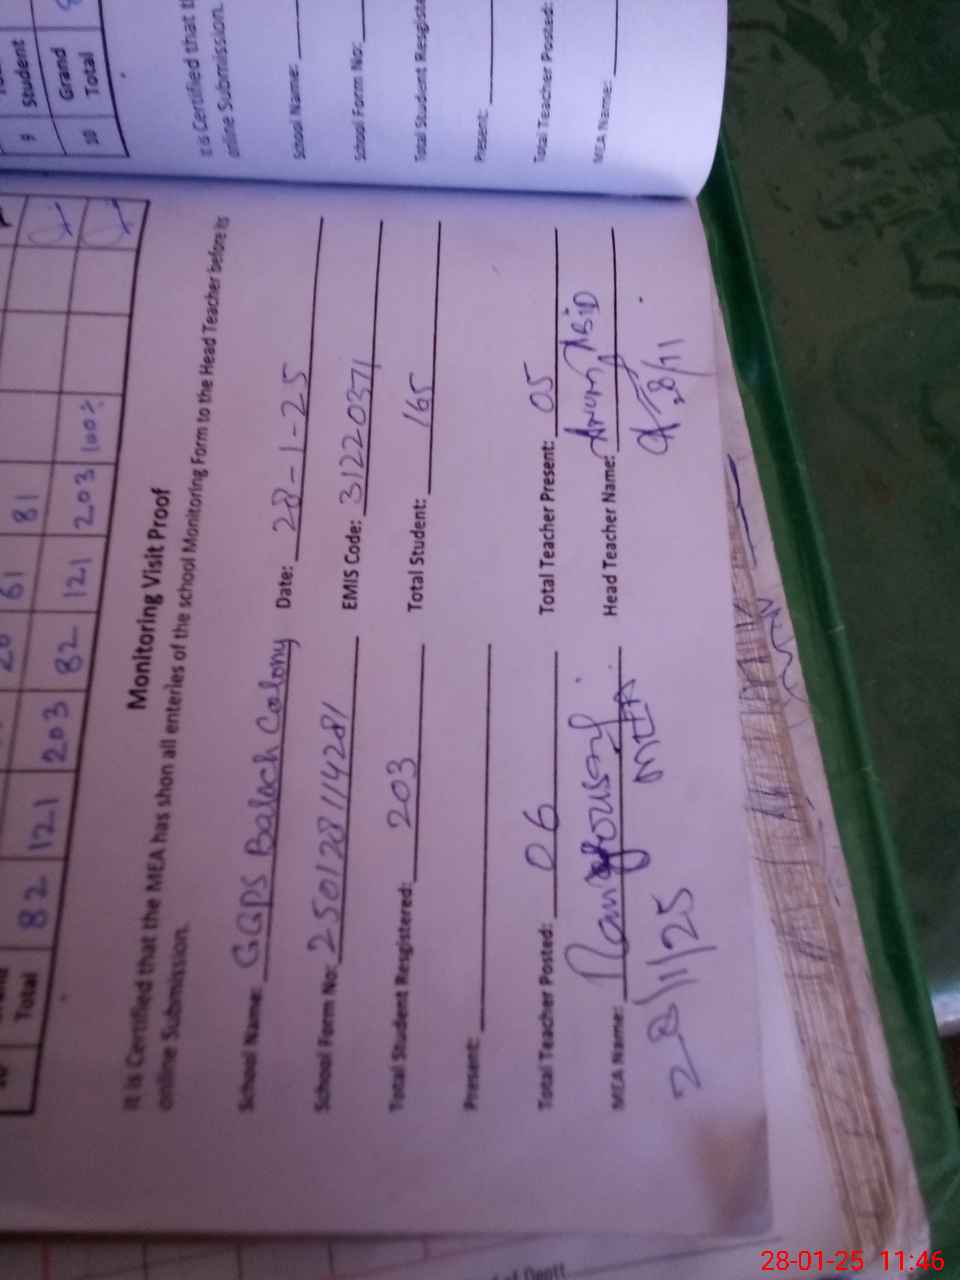 Total 82 121 203 82 121 203 100%
20 61 81
Monitoring Visit Proof
It is Certified that the MEA has shon all enteries of the school Monitoring Form to the Head Teacher before its
online Submission.
School Name: GGPS Baloch Colony Date: 28-1-25
School Form No: 2501281114281 EMIS Code: 31220371
Total Student Resgitered: 203 Total Student: 165
Present:
Total Teacher Posted: 06 Total Teacher Present: 05
MEA Name: Head Teacher Name: Anum ABiD
28/1/25 MEA
9 Student
10 Grand Total
It is Certified that
online Submission.
School Name:
School Form No:
Total Student Resgite
Present:
Total Teacher Posted:
MEA Name:
of Deptt.
28-01-25 11:46